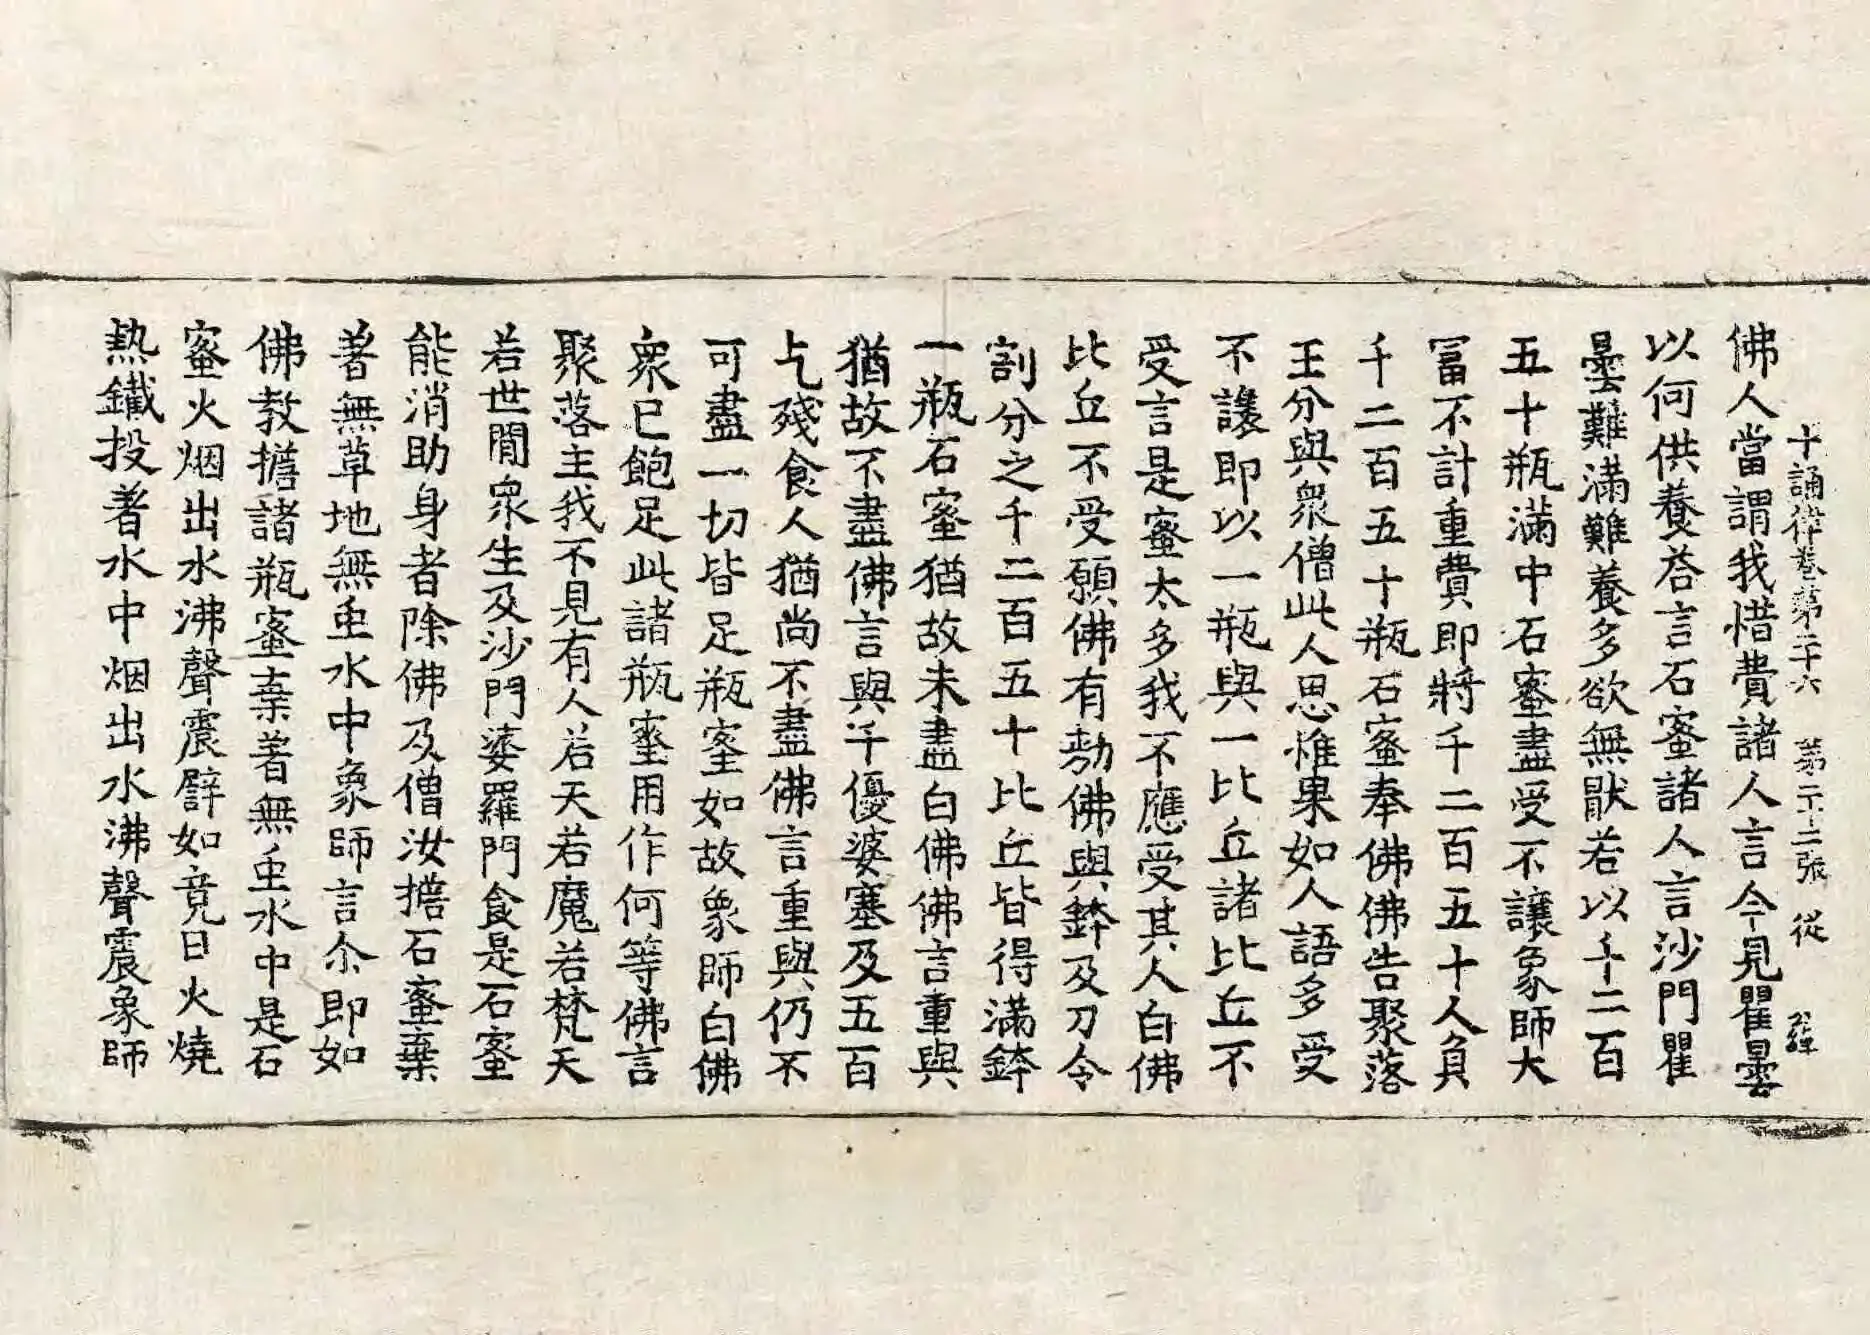 十誦律卷第二十六 第二十二張 從
佛人當謂我惜費諸人言今見瞿曇
以何供養荅言石蜜諸人言沙門瞿
曇難滿難養多欲無猒若以千二百
五十瓶滿中石蜜盡受不讓象師大
冨不計重費即將千二百五十人負
千二百五十瓶石蜜奉佛佛告聚落
主分與衆僧此人思惟果如人語多受
不讓即以一瓶與一比丘諸比丘不
受言是蜜太多我不應受其人白佛
比丘不受願佛有勑佛與鉢及刀令
割分之千二百五十比丘皆得滿鉢
一瓶石蜜猶故未盡白佛佛言重與
猶故不盡佛言與千優婆塞及五百
乞殘食人猶尚不盡佛言重與仍不
可盡一切皆足瓶蜜如故象師白佛
衆已飽足此諸瓶蜜用作何等佛言
聚落主我不見有人若天若魔若梵天
若世間衆生及沙門婆羅門食是石蜜
能消助身者除佛及僧汝擔石蜜棄
著無草地無虫水中象師言尒即如
佛教擔諸瓶蜜棄著無虫水中是石
蜜火烟出水沸聲震譬如竟日火燒
熱鐵投著水中烟出水沸聲震象師